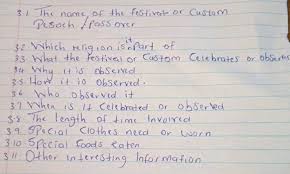 3.1 The name of the festival or Custom
Pesach / Passover
3.2 Which religion is it part of
3.3 What the festival or Custom Celebrates or observes
3.4 Why it is observed
3.5 How it is observed.
3.6 Who observed it
3.7 When is it Celebrated or observed
3.8 The length of time Involved
3.9 Special Clothes need or worn
3.10 Special foods eaten
3.11 Other interesting Information